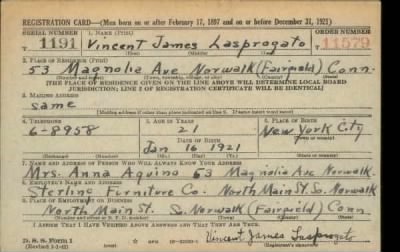 REGISTRATION CARD—(Men born on or after February 17, 1897 and on or before December 31, 1921)
SERIAL NUMBER 1. NAME (Print) ORDER NUMBER
1191 Vincent James Lasprogato 11579
(First) (Middle) (Last)
2. PLACE OF RESIDENCE (Print)
53 Magnolia Ave Norwalk (Fairfield) Conn.
(Number and street) (Town, township, village, or city) (County) (State)
[THE PLACE OF RESIDENCE GIVEN ON THE LINE ABOVE WILL DETERMINE LOCAL BOARD
JURISDICTION; LINE 2 OF REGISTRATION CERTIFICATE WILL BE IDENTICAL]
3. MAILING ADDRESS
same
[Mailing address if other than place indicated on line 2. If same insert word same]
4. TELEPHONE 5. AGE IN YEARS 6. PLACE OF BIRTH
6-8958 21 New York City
DATE OF BIRTH
Jan 16 1921
(Exchange) (Number) (Mo.) (Day) (Yr.) (State or country)
7. NAME AND ADDRESS OF PERSON WHO WILL ALWAYS KNOW YOUR ADDRESS
Mrs. Anna Aquino 53 Magnolia Ave Norwalk.
8. EMPLOYER'S NAME AND ADDRESS
Sterling Furniture Co. North Main St. So. Norwalk
9. PLACE OF EMPLOYMENT OR BUSINESS
North Main St. So. Norwalk (Fairfield) Conn
(Number and street or R. F. D. number) (Town) (County) (State)
I AFFIRM THAT I HAVE VERIFIED ABOVE ANSWERS AND THAT THEY ARE TRUE.
D. S. S. Form 1 Vincent James Lasprogato
(Registrant's signature)